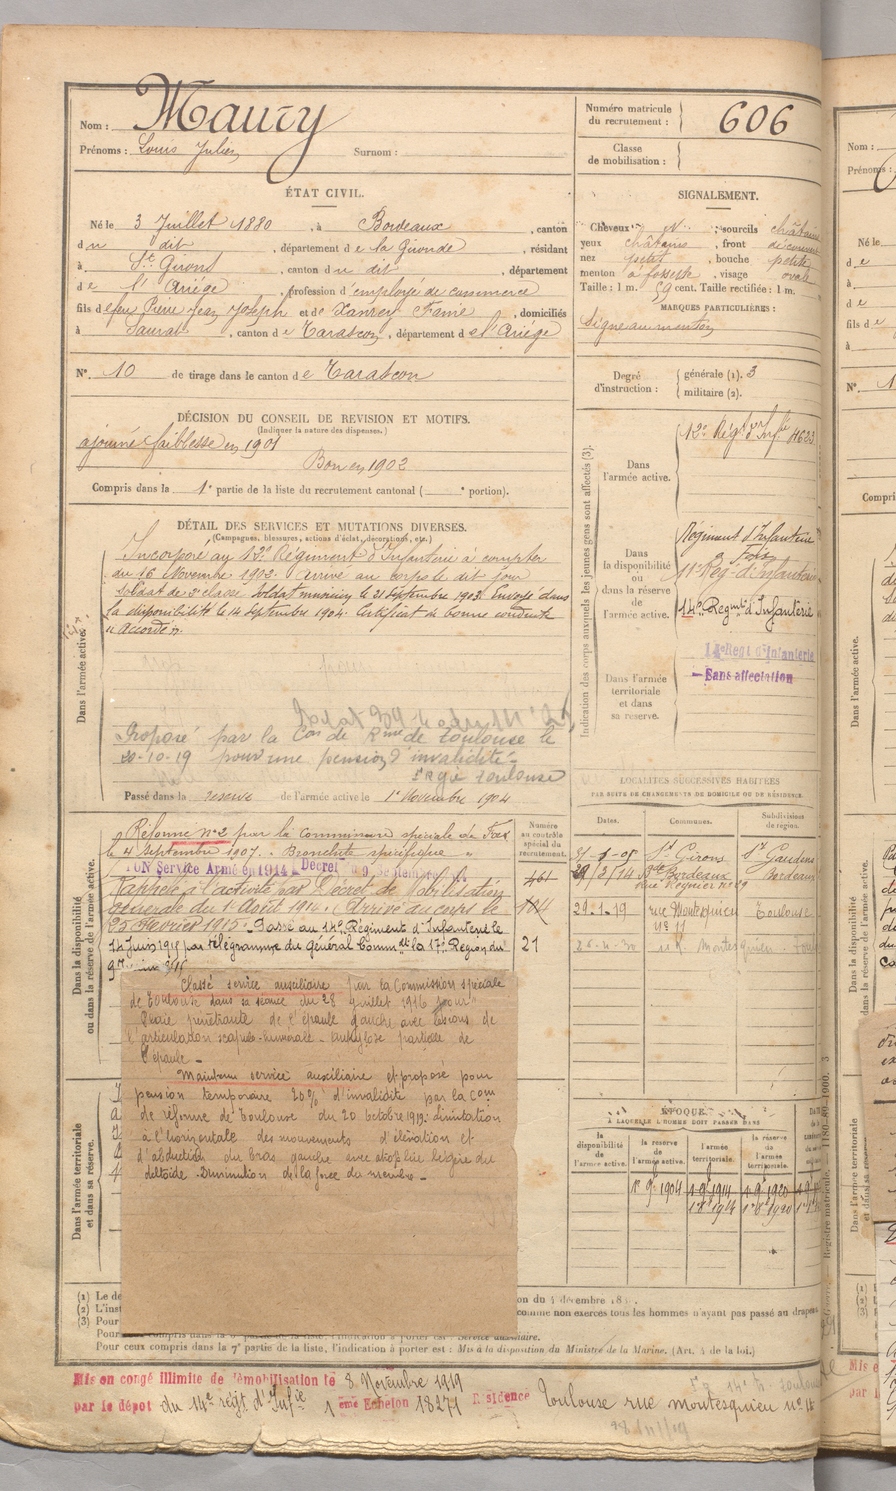 Nom : Maury
Prénoms : Louis Julien Surnom :
Numéro matricule du recrutement : 606
Classe de mobilisation :
ÉTAT CIVIL.
Né le 3 Juillet 1880, à Bordeaux, canton
du dit, département de la Gironde, résidant
à St Girons, canton du dit, département
de l'Ariège, profession d'employé de commerce
fils de feu Pierre Jean Joseph et de, domiciliés
à Saurat, canton de Tarascon, département de l'Ariège
N° 10 de tirage dans le canton de Tarascon
SIGNALEMENT.
Cheveux N. ; sourcils châtains
yeux châtains, front découvert
nez petit, bouche petite
menton à fossette, visage ovale
Taille : 1 m. 59 cent. Taille rectifiée : 1 m.
MARQUES PARTICULIÈRES :
Signe au menton
Degré d'instruction : générale (1). 3
militaire (2).
DÉCISION DU CONSEIL DE REVISION ET MOTIFS.
(Indiquer la nature des dispenses.)
ajourné faiblesse en 1901
Bon en 1902
Compris dans la 1e partie de la liste du recrutement cantonal ( e portion).
DÉTAIL DES SERVICES ET MUTATIONS DIVERSES.
(Campagnes, blessures, actions d'éclat, décorations, etc.)
Dans l'armée active.
Incorporé au 12e Régiment d'Infanterie à compter
du 16 Novembre 1902. Arrivé au corps le dit jour
soldat de 2e classe. Soldat musicien le 21 septembre 1903. Envoyé dans
la disponibilité le 14 Septembre 1904. Certificat de bonne conduite
accordé.
Proposé par la Con de Rme de Toulouse le
20-10-19 pour une pension d'invalidité
Passé dans la réserve de l'armée active le 1er Novembre 1904
Indication des corps auxquels les jeunes gens sont affectés (3).
Dans l'armée active.
12e Régt d'Infie 4623
Dans la disponibilité ou dans la réserve de l'armée active.
Régiment d'Infanterie
Foix
11e Régt d'Infanterie
14e Régimt d'Infanterie
Dans l'armée territoriale et dans sa réserve.
14e Regt d'Infanterie
Sans affectation
Dans la disponibilité ou dans la réserve de l'armée active.
Réformé n°2 par la Commission spéciale de Foix
le 4 Septembre 1907. Bronchite spécifique
Rappelé à l'activité par Décret de Mobilisation
générale du 1er Août 1914. Arrivé au corps le
25 Février 1915. Passé au 14e Régiment d'Infanterie le
14 Juin 1915 par télégramme du Général Commt la 17e Région du
Numéro au contrôle spécial du recrutement.
461
104
21
LOCALITÉS SUCCESSIVES HABITÉES
PAR SUITE DE CHANGEMENTS DE DOMICILE OU DE RÉSIDENCE.
Dates. Communes. Subdivisions de région.
St Girons St Gaudens
Bordeaux Bordeaux
29-1-19 rue Montesquieu Toulouse
n° 11
Classé service auxiliaire par la Commission spéciale
de Toulouse dans sa séance du 28 Juillet 1916 pour
Plaie pénétrante de l'épaule gauche avec lésions de
l'articulation scapulo-humérale. Ankylose partielle de
l'épaule.
Maintenu service auxiliaire et proposé pour
pension temporaire 20% d'invalidité par la Com
de réforme de Toulouse du 20 octobre 1919. Limitation
à l'horizontale des mouvements d'élévation et
d'abduction du bras gauche avec atrophie légère du
deltoïde. Diminution de la force du membre.
Dans l'armée territoriale et dans sa réserve.
ÉPOQUE
À LAQUELLE L'HOMME DOIT PASSER DANS
la disponibilité de l'armée active.
la réserve de l'armée active.
l'armée territoriale.
la réserve de l'armée territoriale.
1er 9 1904
(1) Le de
(2) L'inst
(3) Pour
comme non exercés tous les hommes n'ayant pas passé au drapeau
Pour ceux compris dans la 7e partie de la liste, l'indication à porter est : Mis à la disposition du Ministre de la Marine. (Art. 4 de la loi.)
Mis en congé illimité de démobilisation le 8 Novembre 1919
par le dépôt du 14e régt d'Infie 1 ème Echelon 18271 Résidence Toulouse rue Montesquieu n° 11